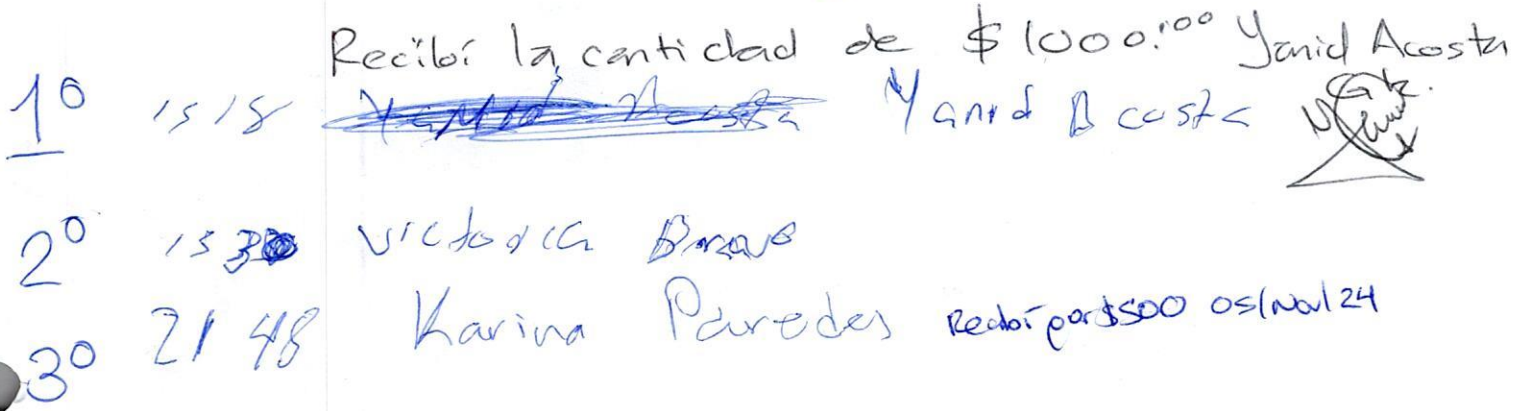 Recibí la cantidad de $1000.00 Yanid Acosta
1º 1518 Yanid Acosta
2º 1530 Victoria Bravo
3º 2148 Karina Paredes Recibí por $500 05/Nov/24